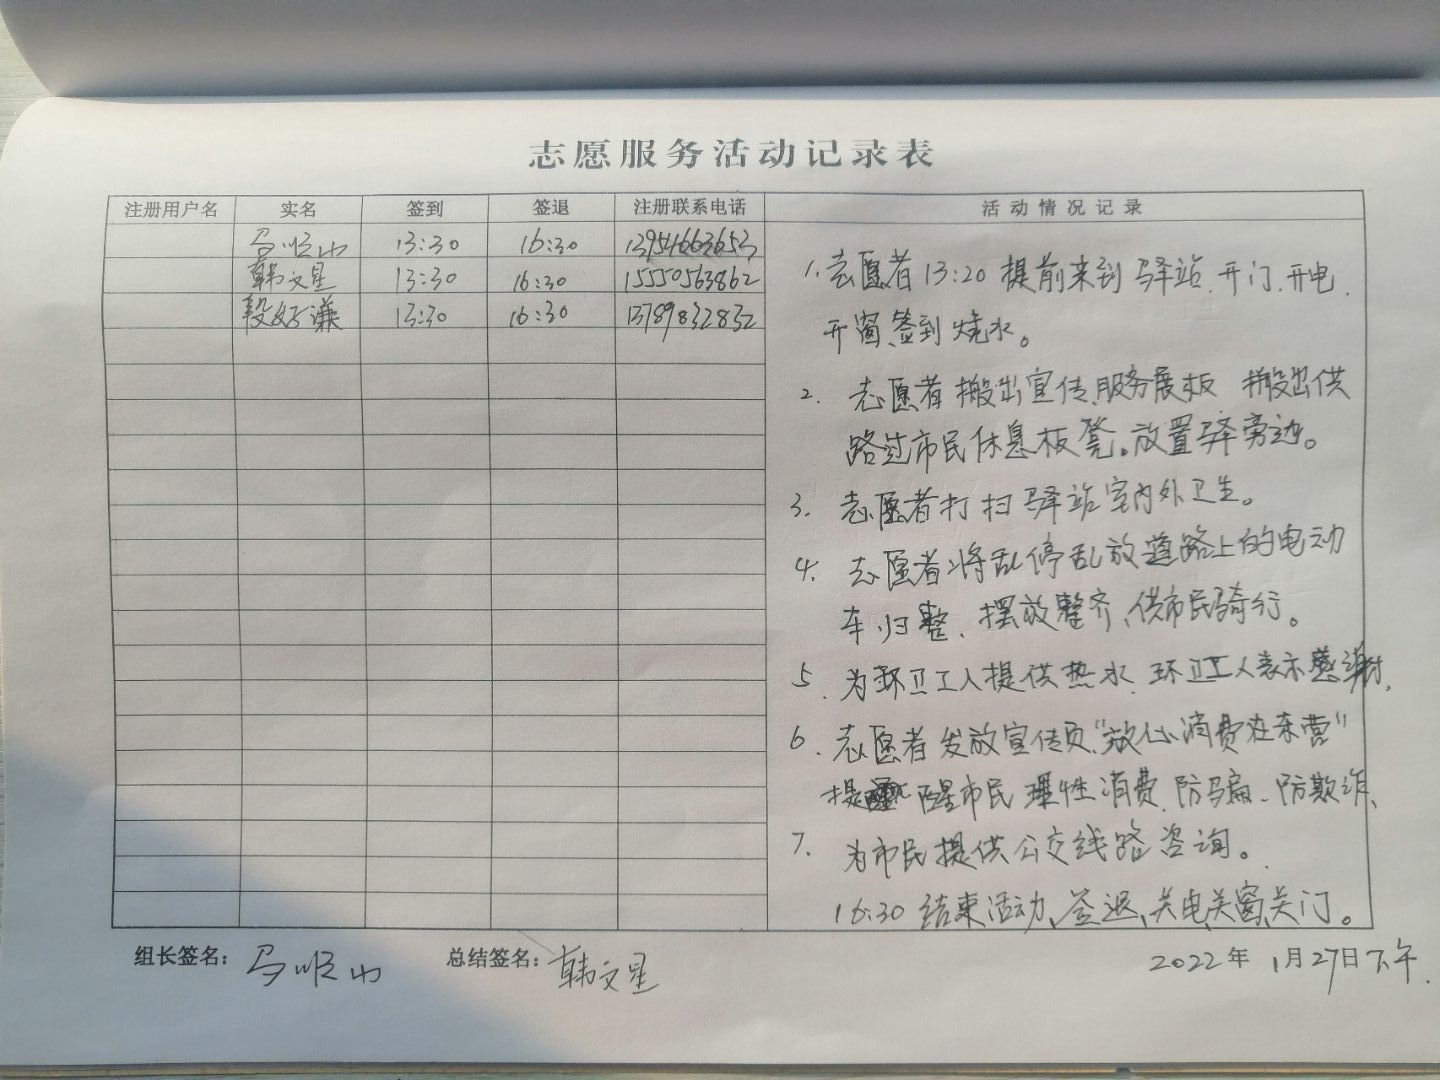 志愿服务活动记录表
注册用户名 实名 签到 签退 注册联系电话 活动情况记录
马顺山 13:30 16:30 13954663653
韩文星 13:30 16:30 15550563862
段好谦 13:30 16:30 13789832832
1.志愿者13:20提前来到驿站、开门、开电、
开窗、签到烧水。
2.志愿者搬出宣传、服务展板 搬出供
路过市民休息板凳。放置驿旁边。
3.志愿者打扫驿站室内外卫生。
4.志愿者将乱停乱放道路上的电动
车归整、摆放整齐、供市民骑行。
5.为环卫工人提供热水、环卫工人表示感谢。
6.志愿者发放宣传页"放心消费在东营"
提醒市民理性消费、防骗、防欺诈、
7.为市民提供公交线路咨询。
16:30结束活动、签退、关电、关窗、关门。
组长签名:马顺山 总结签名:韩文星 2022年1月27日下午.